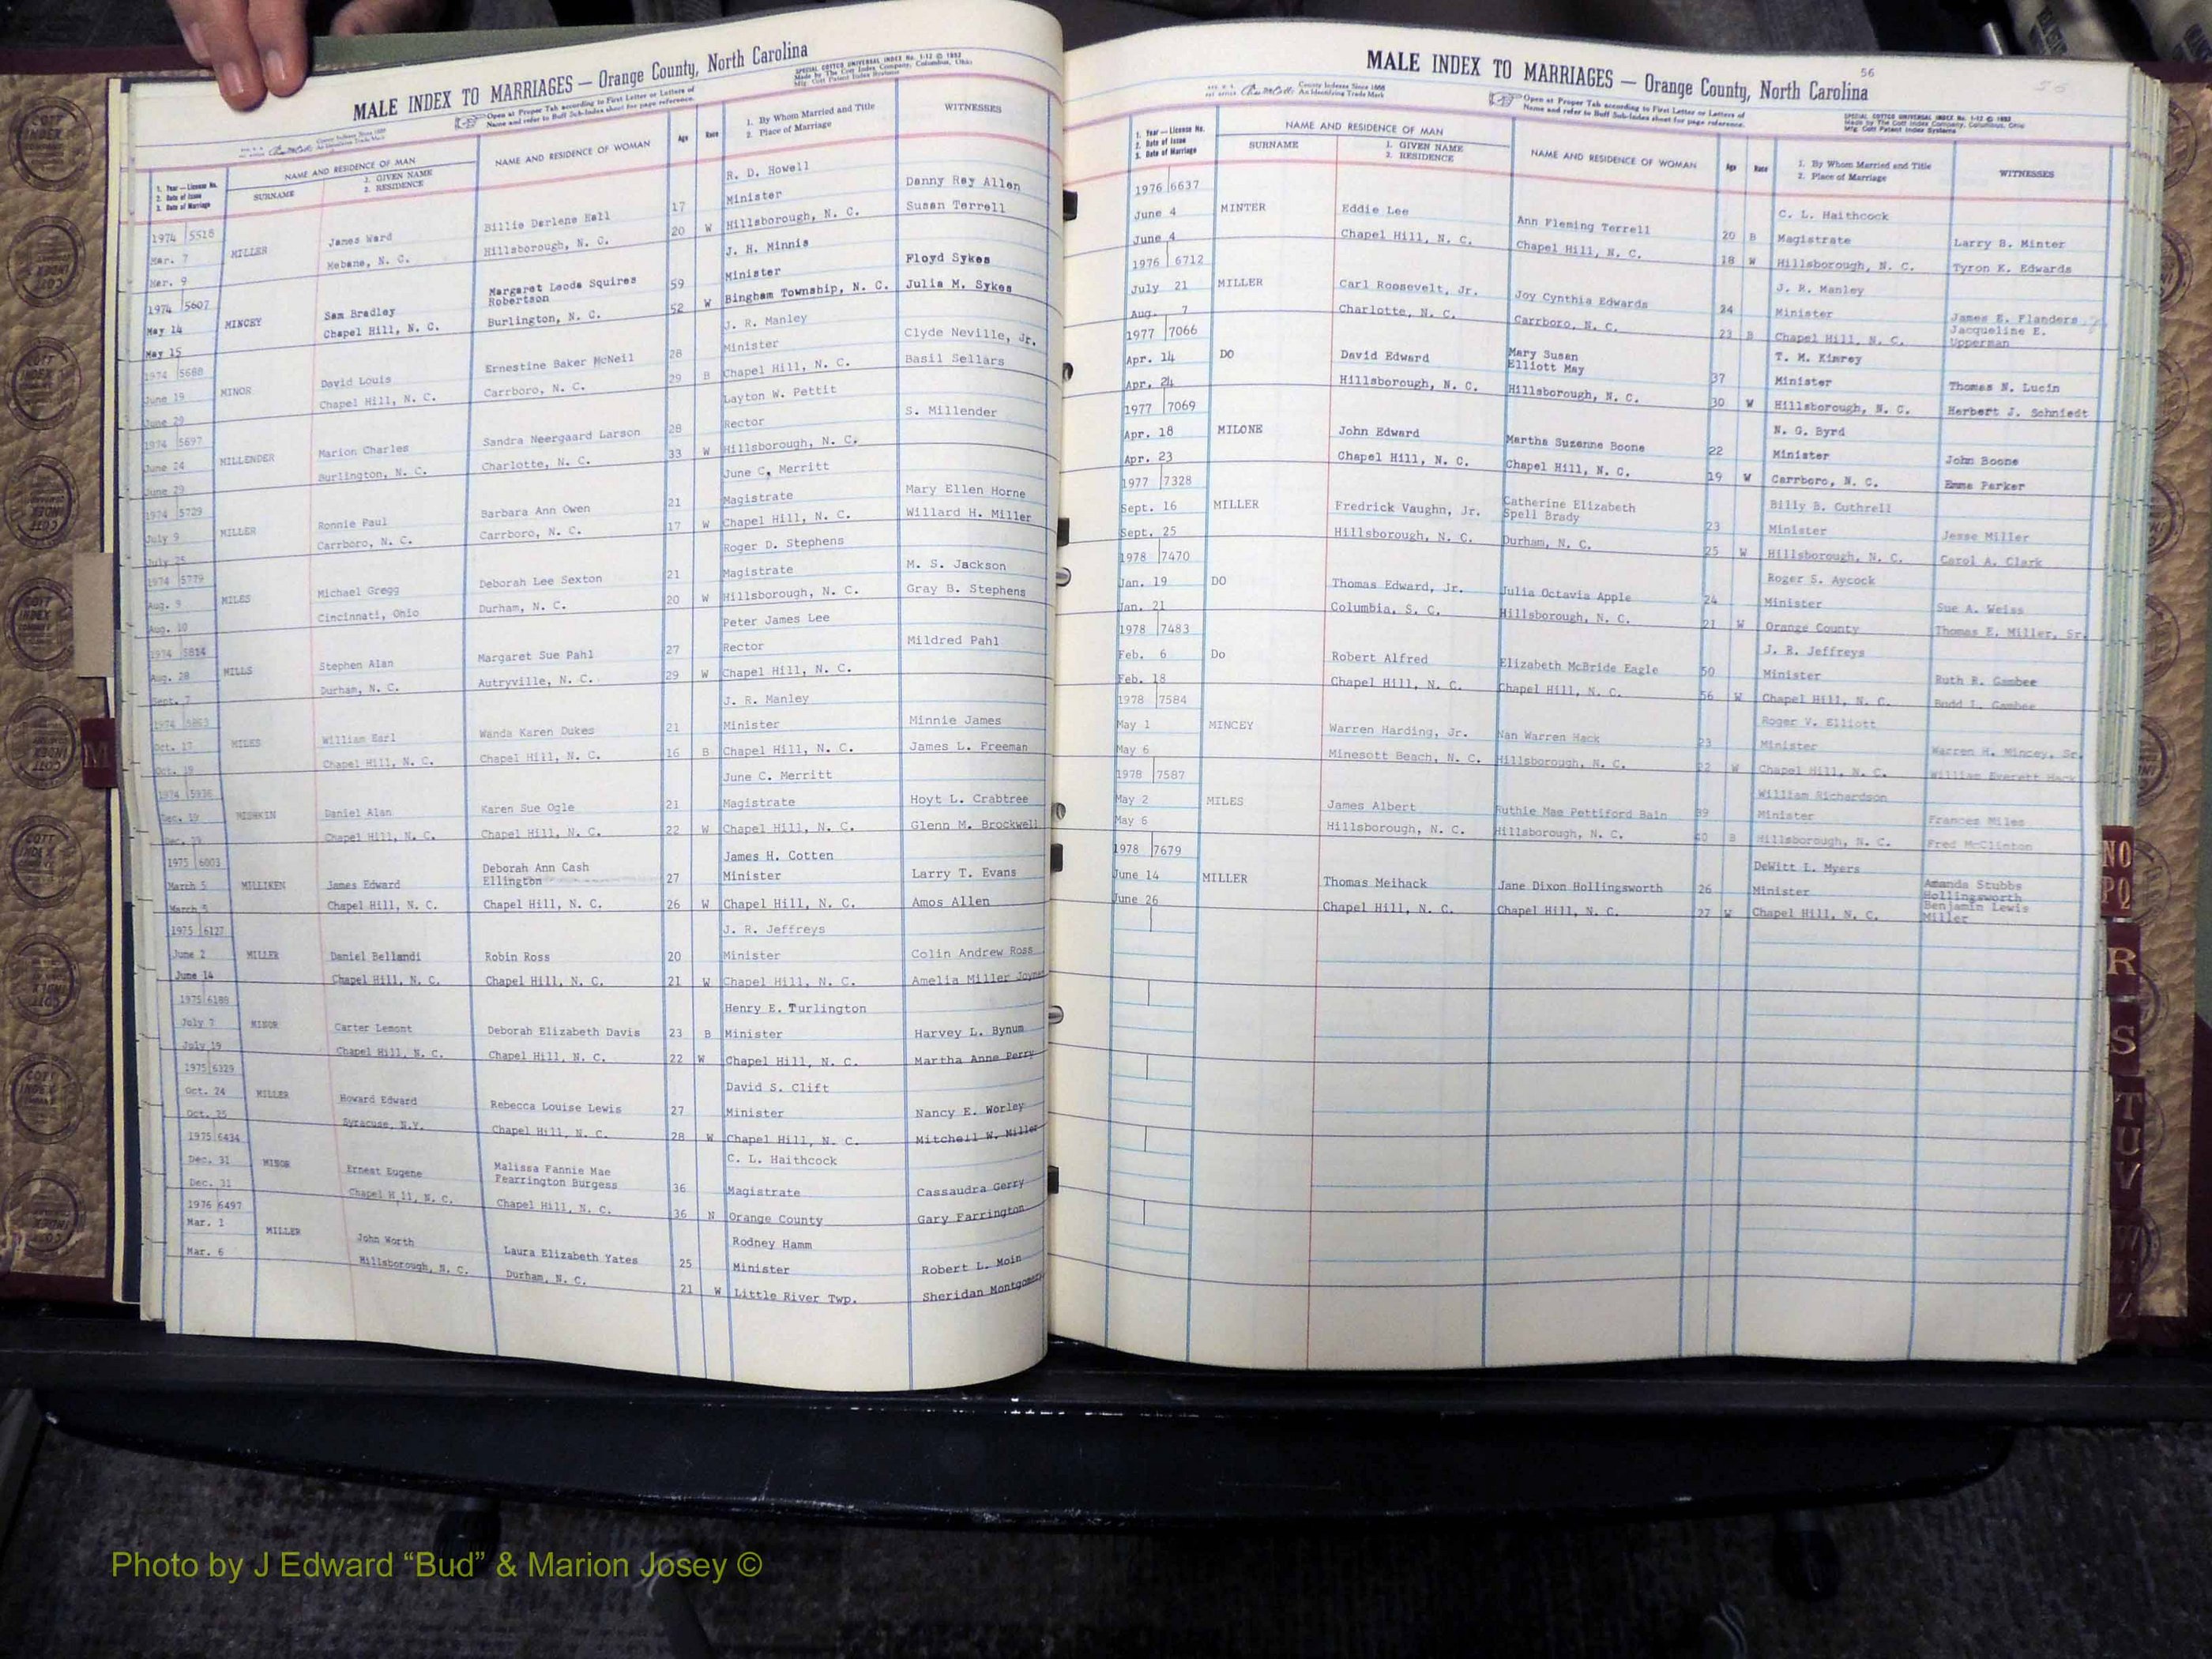 MALE INDEX TO MARRIAGES — Orange County, North Carolina
SPECIAL COTTCO UNIVERSAL INDEX No. 1-12 ©
Made by The Cott Index Company, Columbus, Ohio
Mfg. Cott Patent Index Systems
County Indexes Since 1888
An Identifying Trade Mark
Open at Proper Tab according to First Letter or Letters of
Name and refer to Buff Sub-Index sheet for page reference.
1. Year — License No.
2. Date of Issue
3. Date of Marriage
NAME AND RESIDENCE OF MAN
SURNAME
1. GIVEN NAME
2. RESIDENCE
NAME AND RESIDENCE OF WOMAN
Age
Race
1. By Whom Married and Title
2. Place of Marriage
WITNESSES
1974 5518 R. D. Howell
Mar. 7 MILLER James Ward Billie Darlene Hall 17 Minister Danny Ray Allen
Mar. 9 Mebane, N. C. Hillsborough, N. C. 20 W Hillsborough, N. C. Susan Terrell
1974 5607 J. H. Minnis
May 14 MINCEY Sam Bradley Margaret Leoda Squires Robertson 59 Minister Floyd Sykes
May 15 Chapel Hill, N. C. Burlington, N. C. 52 W Bingham Township, N. C. Julia M. Sykes
1974 5688 J. R. Manley
June 19 MINOR David Louis Ernestine Baker McNeil 28 Minister Clyde Neville, Jr.
June 29 Chapel Hill, N. C. Carrboro, N. C. 29 B Chapel Hill, N. C. Basil Sellars
1974 5697 Layton W. Pettit
June 24 MILLENDER Marion Charles Sandra Neergaard Larson 28 Rector S. Millender
June 29 Burlington, N. C. Charlotte, N. C. 33 W Hillsborough, N. C.
1974 5729 June C. Merritt
July 9 MILLER Ronnie Paul Barbara Ann Owen 21 Magistrate Mary Ellen Horne
July 25 Carrboro, N. C. Carrboro, N. C. 17 W Chapel Hill, N. C. Willard H. Miller
1974 5779 Roger D. Stephens
Aug. 9 MILES Michael Gregg Deborah Lee Sexton 21 Magistrate M. S. Jackson
Aug. 10 Cincinnati, Ohio Durham, N. C. 20 W Hillsborough, N. C. Gray B. Stephens
1974 5814 Peter James Lee
Aug. 28 MILLS Stephen Alan Margaret Sue Pahl 27 Rector Mildred Pahl
Sept. 7 Durham, N. C. Autryville, N. C. 29 W Chapel Hill, N. C.
1974 J. R. Manley
Oct. 17 MILES William Earl Wanda Karen Dukes 21 Minister Minnie James
Oct. 19 Chapel Hill, N. C. Chapel Hill, N. C. 16 B Chapel Hill, N. C. James L. Freeman
1974 5936 June C. Merritt
Dec. 19 MISHKIN Daniel Alan Karen Sue Ogle 21 Magistrate Hoyt L. Crabtree
Dec. Chapel Hill, N. C. Chapel Hill, N. C. 22 W Chapel Hill, N. C. Glenn M. Brockwell
1975 6003 James H. Cotten
March 5 MILLIKEN James Edward Deborah Ann Cash Ellington 27 Minister Larry T. Evans
March 5 Chapel Hill, N. C. Chapel Hill, N. C. 26 W Chapel Hill, N. C. Amos Allen
1975 6127 J. R. Jeffreys
June 2 MILLER Daniel Bellandi Robin Ross 20 Minister Colin Andrew Ross
June 14 Chapel Hill, N. C. Chapel Hill, N. C. 21 W Chapel Hill, N. C. Amelia Miller Joyner
1975 6188 Henry E. Turlington
July 7 MINOR Carter Lemont Deborah Elizabeth Davis 23 B Minister Harvey L. Bynum
July 19 Chapel Hill, N. C. Chapel Hill, N. C. 22 W Chapel Hill, N. C. Martha Anne Perry
1975 6329 David S. Clift
Oct. 24 MILLER Howard Edward Rebecca Louise Lewis 27 Minister Nancy E. Worley
Oct. 25 Syracuse, N.Y. Chapel Hill, N. C. 28 W Chapel Hill, N. C. Mitchell W. Miller
1975 6434 C. L. Haithcock
Dec. 31 MINOR Ernest Eugene Malissa Fannie Mae Fearrington Burgess 36 Magistrate Cassaudra Gerry
Dec. 31 Chapel H ll, N. C. Chapel Hill, N. C. 36 N Orange County Gary Farrington
1976 6497 Rodney Hamm
Mar. 1 MILLER John Worth Laura Elizabeth Yates 25 Minister Robert L. Moin
Mar. 6 Hillsborough, N. C. Durham, N. C. 21 W Little River Twp. Sheridan Montgomery
M
56
56
MALE INDEX TO MARRIAGES — Orange County, North Carolina
County Indexes Since 1888
An Identifying Trade Mark
Open at Proper Tab according to First Letter or Letters of
Name and refer to Buff Sub-Index sheet for page reference.
SPECIAL COTTCO UNIVERSAL INDEX No. 1-12 ©
Made by The Cott Index Company, Columbus, Ohio
Mfg. Cott Patent Index Systems
1. Year — License No.
2. Date of Issue
3. Date of Marriage
NAME AND RESIDENCE OF MAN
SURNAME
1. GIVEN NAME
2. RESIDENCE
NAME AND RESIDENCE OF WOMAN
Age
Race
1. By Whom Married and Title
2. Place of Marriage
WITNESSES
1976 6637 C. L. Haithcock
June 4 MINTER Eddie Lee Ann Fleming Terrell 20 B Magistrate Larry B. Minter
June 4 Chapel Hill, N. C. Chapel Hill, N. C. 18 W Hillsborough, N. C. Tyron K. Edwards
1976 6712 J. R. Manley
July 21 MILLER Carl Roosevelt, Jr. Joy Cynthia Edwards 24 Minister James E. Flanders
Aug. 7 Charlotte, N. C. Carrboro, N. C. 23 B Chapel Hill, N. C. Jacqueline E. Upperman
1977 7066 T. M. Kimrey
Apr. 14 DO David Edward Mary Susan Elliott May 37 Minister Thomas N. Lucin
Apr. 24 Hillsborough, N. C. Hillsborough, N. C. 30 W Hillsborough, N. C. Herbert J. Schmiedt
1977 7069 N. G. Byrd
Apr. 18 MILONE John Edward Martha Suzanne Boone 22 Minister John Boone
Apr. 23 Chapel Hill, N. C. Chapel Hill, N. C. 19 W Carrboro, N. C. Emma Parker
1977 7328 Billy B. Cuthrell
Sept. 16 MILLER Fredrick Vaughn, Jr. Catherine Elizabeth Spell Brady 23 Minister Jesse Miller
Sept. 25 Hillsborough, N. C. Durham, N. C. 25 W Hillsborough, N. C. Carol A. Clark
1978 7470 Roger S. Aycock
Jan. 19 DO Thomas Edward, Jr. Julia Octavia Apple 24 Minister Sue A. Weiss
Jan. 21 Columbia, S. C. Hillsborough, N. C. 21 W Orange County Thomas E. Miller, Sr.
1978 7483 J. R. Jeffreys
Feb. 6 Do Robert Alfred Elizabeth McBride Eagle 50 Minister Ruth R. Gambee
Feb. 18 Chapel Hill, N. C. Chapel Hill, N. C. 56 W Chapel Hill, N. C. Budd L. Gambee
1978 7584 Roger V. Elliott
May 1 MINCEY Warren Harding, Jr. Nan Warren Hack 23 Minister Warren H. Mincey, Sr.
May 6 Minesott Beach, N. C. Hillsborough, N. C. 22 W Chapel Hill, N. C. William Everett Hack
1978 7587 William Richardson
May 2 MILES James Albert Ruthie Mae Pettiford Bain 39 Minister Frances Miles
May 6 Hillsborough, N. C. Hillsborough, N. C. 40 B Hillsborough, N. C. Fred McClinton
1978 7679 DeWitt L. Myers
June 14 MILLER Thomas Meihack Jane Dixon Hollingsworth 26 Minister Amanda Stubbs Hollingsworth
June 26 Chapel Hill, N. C. Chapel Hill, N. C. 27 W Chapel Hill, N. C. Benjamin Lewis Miller
NO
PQ
R
S
T
U
V
W
Z
Photo by J Edward “Bud” & Marion Josey ©